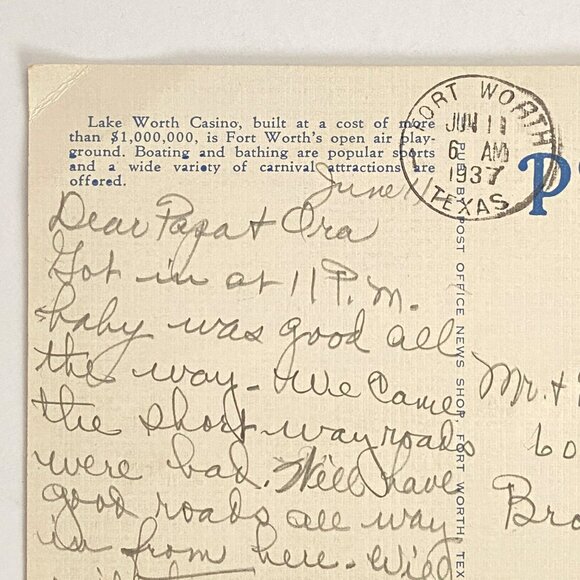 Lake Worth Casino, built at a cost of more
than $1,000,000, is Fort Worth's open air play-
ground. Boating and bathing are popular sports
and a wide variety of carnival attractions are
offered.
FORT WORTH
JUN 11
6 AM
1937
TEXAS
P
June 11
Dear Papa + Ora
Got in at 11 P.M.
baby was good all
the way - We Came
the short way roads
were bad. Will have
good roads all way
in from here. Will
PUB. BY POST OFFICE NEWS SHOP, FORT WORTH, TEX
Mr. +
60
Bro